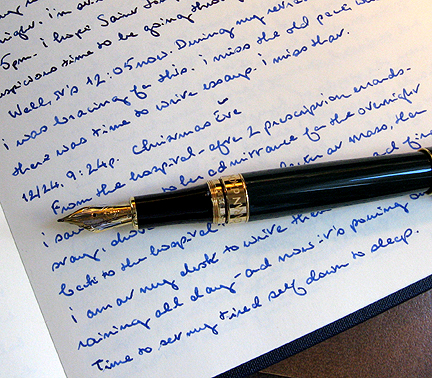 night. i'm
5pm. i hope Saint
auspicious time to be going thro
Well, it's 12:05 now. During my
i was bracing for this. i miss the old pace
there was time to write essays. i miss that.
12/24. 9:24p. Christmas Eve
From the hospital-after 2 prescription errands-
to be admittance for the overnight
i at mass, then
sang,
back to the hospital.
i am at my desk to write
raining all day-and now it's pouring
Time to set my tired self down to sleep.